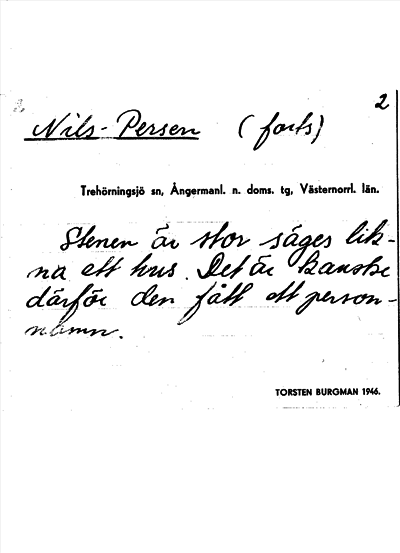 2
Nils-Persen (forts)
Trehörningsjö sn, Ångermanl. n. doms. tg, Västernorrl. län.
Stenen är stor säges lik-
na ett hus. Det är kanske
därför den fått ett person-
namn.
TORSTEN BURGMAN 1946.